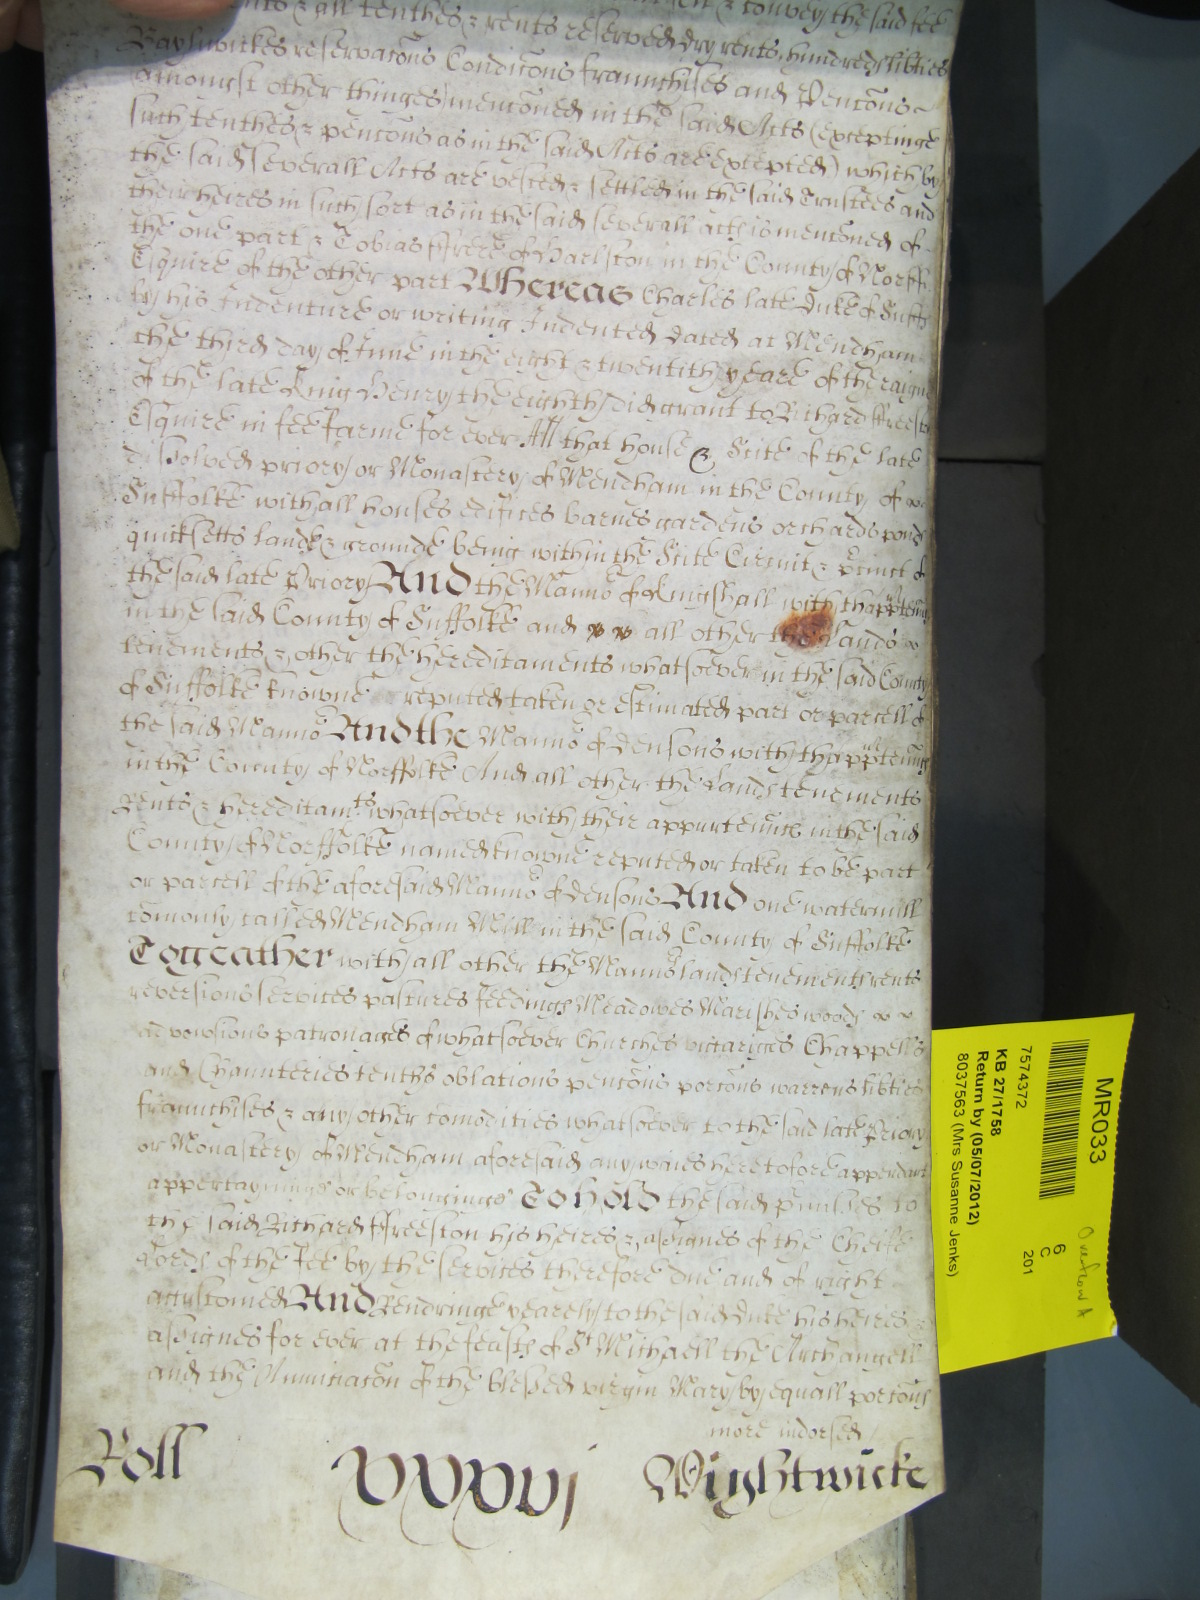 & all tenthes & rents reserved dry rents hundreds lib͠ties
Baylywickes reservac͠ons Condic͠ons fraunchises and Penc͠ons
amongst other thinges menc͠oned in the said Acts (exceptinge
such tenthes & penc͠ons as in the said Acts are excepted) which by
the said severall Acts are vested & settled in the said Trustees and
their heires in such sort as in the said severall acts is menc͠oned of
the one part & Tobias ffrere of Harlston in the County of Norff
Esquire of the other part Whereas Charles late Duke of Suff
by his Indenture or writing Indented dated at Mendham
the third day of June in the eight & twentith yeare of the raign
of the late King Henry the eighth did grant to Richard ffreston
Esquire in fee farme for ever All that house & Scite of the late
dissolved priory or Monastery of Mendham in the County of
Suffolke with all houses edifices barnes gardens orchards ponds
quicksetts lands & grounds being within the Scite Circuit & p͠cinct of
the said late Priory And the Manno͠ of Kingshall with thapp͠ten͠nc
in the said County of Suffolke and all other the Lands
tenements & other the hereditaments whatsoever in the said County
of Suffolke knowne reputed taken or estimated part or parcell of
the said Manno͠ And the Manno͠ of Densons with thapp͠ten͠nc
in the County of Norffolke And all other the Lands tenements
Rents & hereditamts whatsoever with their appurten͠nc in the said
County of Norffolke named knowne reputed or taken to be part
or parcell of the aforesaid Manno͠ of Densons And one watermill
com͠only called Mendham Mill in the said County of Suffolke
Togeather with all other the Manno͠s lands tenements rents
reversions services pastures feedings Meadowes Marishes woods
advowsions patronages of whatsoever Churches vicariges Chappells
and Chaunteries tenths oblations penc͠ons porc͠ons warrens lib͠ties
fraunchises & any other comodities whatsoever to the said late Priory
or Monastery of Mendham aforesaid any waies heretofore apperdant
appertayninge or belonginge To hold the said p͠misses to
the said Richard ffreeston his heires & assignes of the Cheife
Lords of the fee by the services therefore due and of right
accustomed And Rendringe yearely to the said Duke his heires &
assignes for ever at the feasts of St Michaell the Archangell
and the Annunciac͠on of the blessed virgin Mary by equall porc͠ons
more indorsed
Roll XXXVI Wightwicke
MR033
7574372
KB 27/1758
Return by (05/07/2012)
8037563 (Mrs Susanne Jenks)
6
C
201
Overflow A